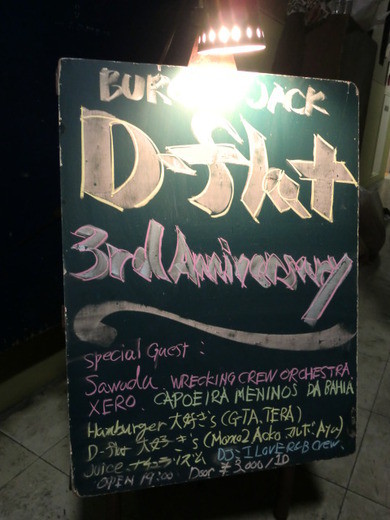 BUR JACK
D-flat
3rd Anniversary
Special Guest :
Sawada. WRECKING CREW ORCHESTRA.
XERO. CAPOEIRA MENINOS DA BAHIA
Hamburger 大好き's (GTA, TERA)
D-flat 大好き's (Momo2 Acko アルボ Ayu)
Juice ナチュラリズム DJ's I LOVE R&B CREW.
OPEN 19:00 Door ¥3,000/1D